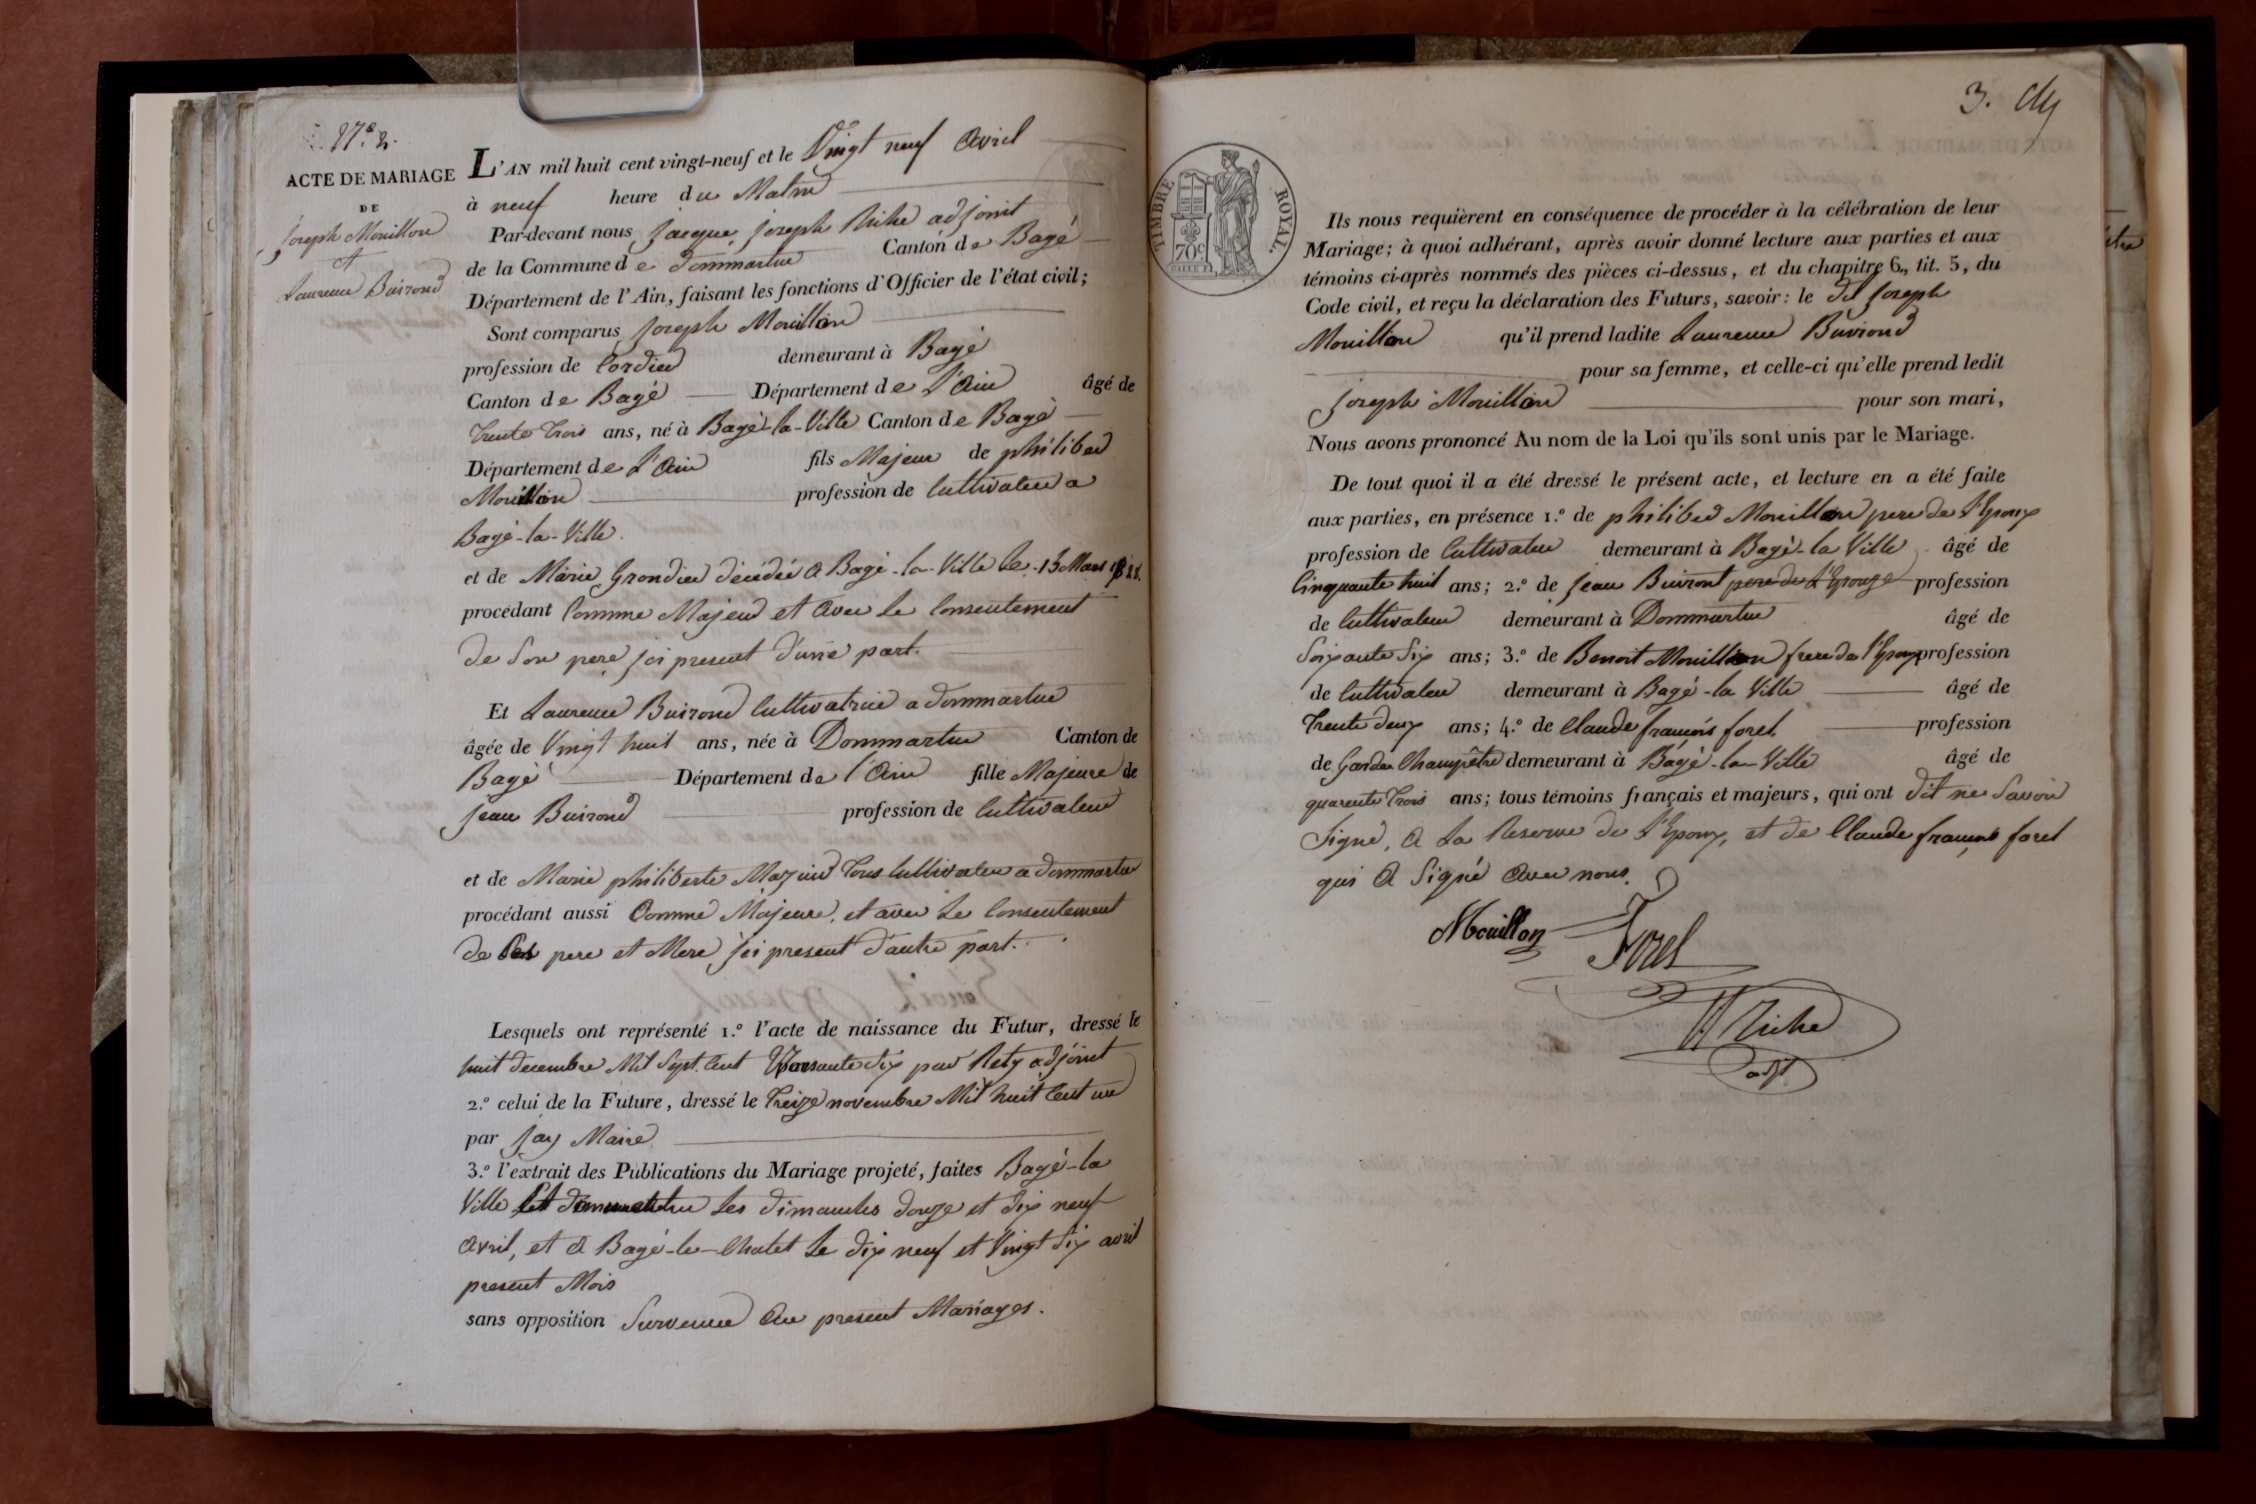 N.º 2.
ACTE DE MARIAGE
DE
Joseph Mouillon
et
Laurence Buirond
L'AN mil huit cent vingt-neuf et le Vingt neuf Avril
à neuf heure du Matin
Par-devant nous Jacque Joseph Riche adjoint
de la Commune de dommartin Canton de Bagé
Département de l'Ain, faisant les fonctions d'Officier de l'état civil;
Sont comparus Joseph Mouillon
profession de Cordier demeurant à Bagé
Canton de Bagé Département de L'Ain âgé de
trente trois ans, né à Bagé-la-Ville Canton de Bagé
Département de L'Ain fils Majeur de philibert
Mouillon profession de Cultivateur a
Bagé-la-Ville.
et de Marie Grondier décédée a Bagé-la-Ville le 13 Mars
procédant Comme Majeur et Avec le Consentement
de Son pere ici present d'une part.
Et Laurence Buirond Cultivatrice a dommartin
âgée de Vingt huit ans, née à Dommartin Canton de
Bagé Département de l'Ain fille Majeure de
Jean Buirond profession de Cultivateur
et de Marie philiberte Mazuir tous Cultivateur a dommartin
procédant aussi Comme Majeure, et avec le Consentement
de Ses pere et Mere ici present d'autre part.
Lesquels ont représenté 1.º l'acte de naissance du Futur, dressé le
huit decembre Mil Sept Cent par Rety adjoint
2.º celui de la Future, dressé le treize novembre Mil huit Cent un
par Jay Maire
3.º l'extrait des Publications du Mariage projeté, faites Bagé-la
Ville et dommartin les dimanches douze et dix neuf
avril, et a Bagé-le-Chatel le dix neuf et Vingt Six avril
present Mois
sans opposition Survenue Au present Mariages.
3.
TIMBRE ROYAL.
70c
Ils nous requièrent en conséquence de procéder à la célébration de leur
Mariage; à quoi adhérant, après avoir donné lecture aux parties et aux
témoins ci-après nommés des pièces ci-dessus, et du chapitre 6, tit. 5, du
Code civil, et reçu la déclaration des Futurs, savoir: le dit Joseph
Mouillon qu'il prend ladite Laurence Buirond
pour sa femme, et celle-ci qu'elle prend ledit
Joseph Mouillon pour son mari,
Nous avons prononcé Au nom de la Loi qu'ils sont unis par le Mariage.
De tout quoi il a été dressé le présent acte, et lecture en a été faite
aux parties, en présence 1.º de philibert Mouillon pere de l'Epoux
profession de Cultivateur demeurant à Bagé-la Ville âgé de
Cinquante huit ans; 2.º de Jean Buiront pere de L'Epouze profession
de Cultivateur demeurant à Dommartin âgé de
Soixante Six ans; 3.º de Benoit Mouillon frere de l'Epoux profession
de Cultivateur demeurant à Bagé-la Ville âgé de
trente deux ans; 4.º de Claude françois forel profession
de Garde Champêtre demeurant à Bagé-la-Ville âgé de
quarente trois ans; tous témoins français et majeurs, qui ont dit ne Savoir
Signé, A La Reserve de L'Epoux, et de Claude françois forel
qui A Signé avec nous.
Mouillon Forel
Riche
adjt